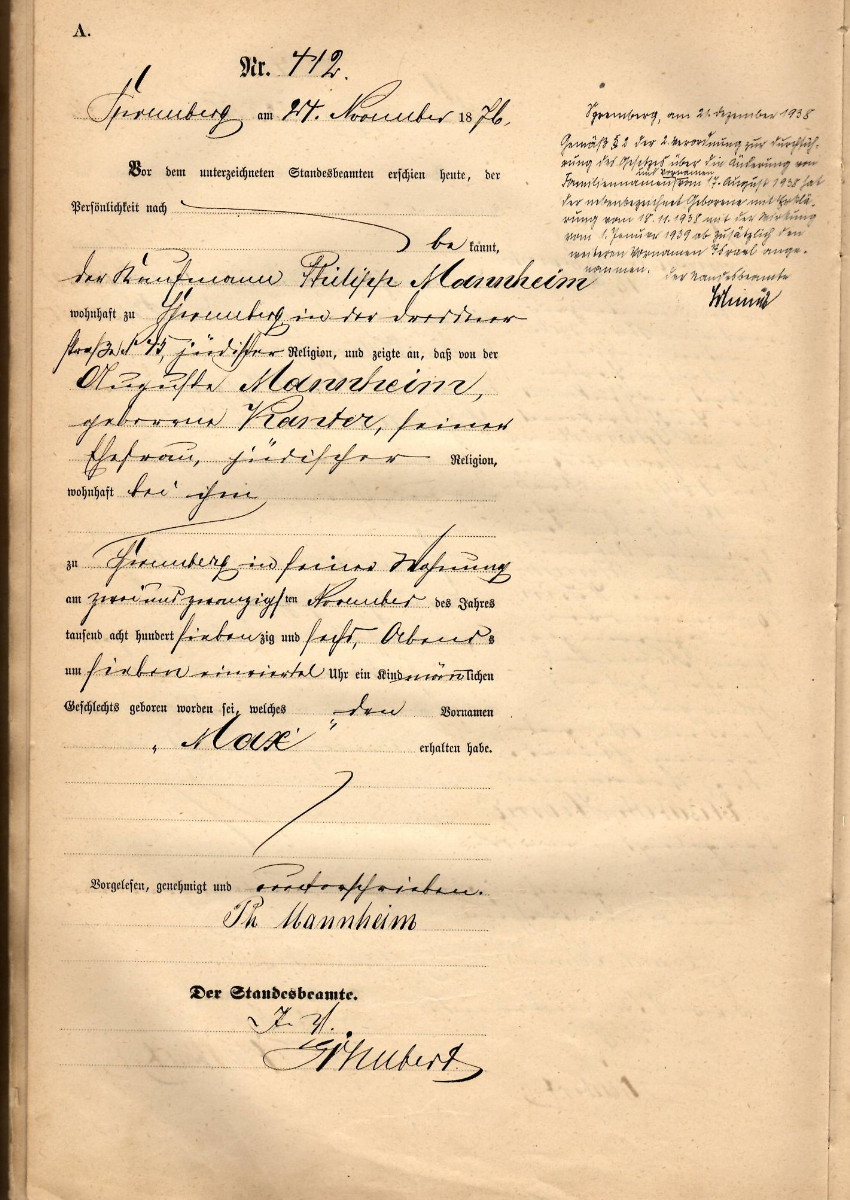 A.
Nr. 412.
Spremberg am 24. November 1876.
Vor dem unterzeichneten Standesbeamten erschien heute, der
Persönlichkeit nach
be kannt,
der Kaufmann Philipp Mannheim
wohnhaft zu Spremberg in der Dresdner
straße No 45 jüdischer Religion, und zeigte an, daß von der
Auguste Mannheim,
geborene Kanter, seiner
Ehefrau, jüdischer Religion,
wohnhaft bei ihm
zu Spremberg in seiner Wohnung
am zweiundzwanzigsten November des Jahres
tausend acht hundert siebenzig und sechs, Abends
um sieben einviertel Uhr ein Kind männlichen
Geschlechts geboren worden sei, welches den Vornamen
„Max" erhalten habe.
Vorgelesen, genehmigt und unterschrieben.
Ph Mannheim
Der Standesbeamte.
I. V.
Schubert
Spremberg, am 21. Dezember 1938
Gemäß § 2 der 2. Verordnung zur Durchfüh-
rung des Gesetzes über die Änderung von
Familiennamen und Vornamen vom 17. August 1938 hat
der nebenbezeichnet Geborene mit Erklä-
rung vom 18.11.1938 mit der Wirkung
vom 1. Januar 1939 ab zusätzlich den
weiteren Vornamen Israel ange-
nommen. Der Standesbeamte